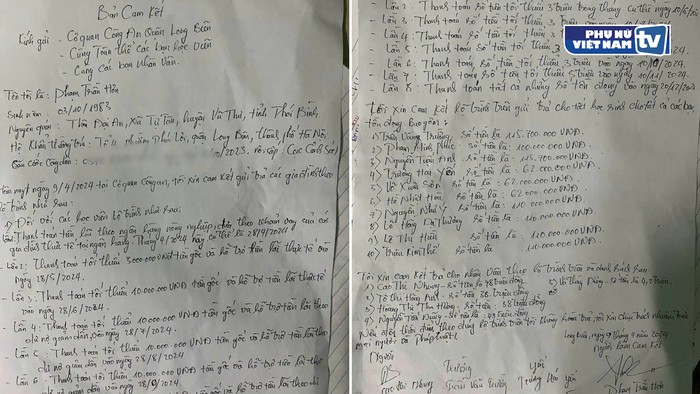 Bản Cam Kết
Kính gửi - Cơ quan Công An Quận Long Biên
- Cùng Toàn thể các bạn học viên
- Cùng các bạn nhân văn.
Tên tôi là: Phạm Trần Hòa
Sinh năm: 03/10/1983
Nguyên quán: Thôn Đại An, Xã Tự Tân, huyện Vũ Thư, tỉnh Thái Bình,
Hộ khẩu thường trú: Tổ phường Phúc Lợi, quận Long Biên, thành phố Hà Nội,
Căn cước công dân: /2023. nơi cấp: (Cục Cảnh Sát)
Hôm nay ngày 9/4/2024 tại Cơ quan Công an, tôi xin cam kết gửi trả các gia đình theo
lộ trình như sau:
1) Đối với các học viên lộ trình như sau:
Lần 1: Thanh toán tiền lãi theo ngân hàng nông nghiệp theo khoản vay của các
gia đình thực tế tại ngân hàng. Tháng 4/2024 này cụ thể là 28/4/2024
- Lần 2: Thanh toán tối thiểu 3.000.000 VNĐ tiền gốc và hỗ trợ tiền lãi thực tế vào
ngày 28/5/2024.
- Lần 3: Thanh toán tối thiểu 10.000.000 VNĐ tiền gốc và hỗ trợ tiền lãi thực tế
vào ngày 28/6/2024.
- Lần 4: Thanh toán tối thiểu 10.000.000 VNĐ tiền gốc và hỗ trợ tiền lãi theo
dư nợ gian dần, vào ngày 28/7/2024.
- Lần 5: Thanh toán tối thiểu 10.000.000 VNĐ tiền gốc và hỗ trợ tiền lãi theo
dư nợ gian dần vào ngày 28/8/2024
- Lần 6: Thanh toán tối thiểu 10.000.000 VNĐ tiền gốc và hỗ trợ tiền lãi theo
dư nợ gian dần vào ngày /2024.
- Lần 2: Thanh toán số tiền tối thiểu 3 triệu trong tháng cụ thể ngày 10/6/
- Lần 3: Thanh toán số tiền tối thiểu 3 triệu
- Lần 4: Thanh toán số tiền tối thiểu 3
- Lần 5: Thanh toán số tiền tối thiểu
- Lần 6: Thanh toán số tiền tối thiểu 3 triệu vào ngày 10/10/2024.
- Lần 7: Thanh toán số tiền tối thiểu 5 triệu vào ngày 10/11/2024.
- Lần 8: Thanh toán tất cả những số tiền đọng vào ngày 20/12/2024
PHỤ NỮ
VIỆT NAM
tv
Tôi xin cam kết lộ trình trên gửi trả cho tất học sinh cho tất cả các bạn
tồn đọng bao gồm:
1) Trần Văn Trường số tiền là: 115.700.000 VNĐ.
2) Phạm Minh Phúc số tiền là: 100.000.000 VNĐ.
3) Nguyễn Tiến Anh số tiền là: 115.700.000 VNĐ.
4) Trương Hải Yến số tiền là: 62.000.000 VNĐ
5) Võ Xuân Sơn số tiền là: 62.000.000 VNĐ.
6) Hồ Nhật Tân số tiền là: 62.000.000 VNĐ.
7) Nguyễn Như Ý số tiền là: 110.000.000 VNĐ
8) Lê Hồng Kim Thương số tiền là: 110.000.000 VNĐ.
9) Lê Thị Hiền số tiền là 110.000.000 VNĐ.
10) Trần Kim Thể số tiền là 110.000.000 VNĐ.
Tôi xin cam kết trả cho nhân văn theo lộ trình trên và danh sách sau
1) Cao Thị Nhung - số tiền là 98 triệu đồng
2) Tô Thị Hồng Anh - số tiền là 38 triệu đồng
3) Hoàng Thị Thu Hằng - số tiền là 38 triệu đồng
Nếu đến thời điểm theo đúng lộ trình trên tôi không hoàn trả, tôi xin chịu trách nhiệm trước
mọi người và Pháp luật.
Long Biên, ngày 9 tháng 4 năm 2024
Người làm cam kết
Cao Thị Nhung Trần Văn Trường Trương Hải Yến
Phạm Trần Hòa